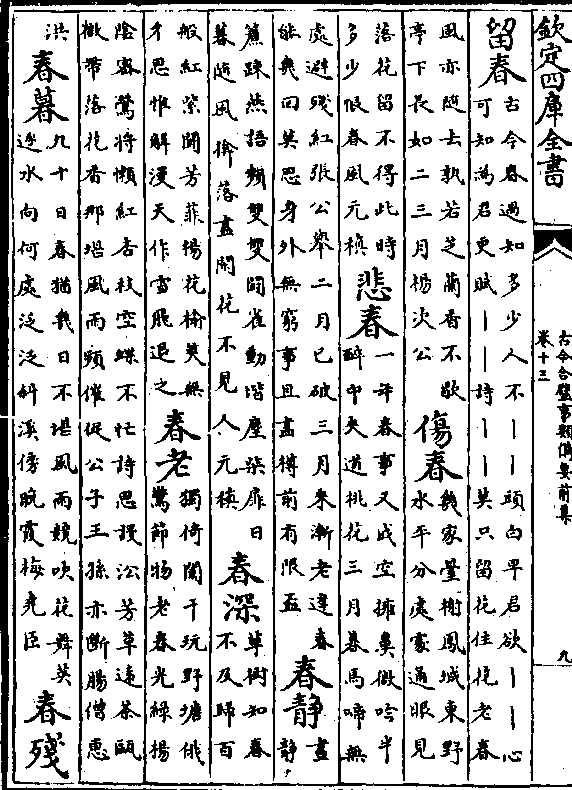 欽定四庫全書
古今合璧事類備要前集
卷十三
九
留春
古今春過知多少人不丨丨頭白早君欲丨丨心
可知為君更賦丨丨詩丨丨莫只留花住花老春
風亦隨去孰若芝蘭香不歇
亭下長如二三月楊次公
傷春
幾家臺榭鳳城東野
水平分處處通眼見
落花留不得此時
多少假春風元稹
悲春
一年春事又成空擁鼻微吟半
醉中夾道桃花三月暮馬啼無
處避殘紅張公舉二月已破三月來漸老逢春
能幾回莫思身外無窮事且盡樽前有限盃
春靜
晝
靜
簾疎燕語頻雙雙鬭雀動堦塵柴扉日
暮隨風掩落盡閑花不見人元稹
春深
草樹知春
不及歸百
般紅紫鬭芳菲楊花榆莢無
才思惟解漫天作雪飛退之
春老
獨倚闌干玩野塘俄
驚節物老春光綠楊
陰密鶯將懶紅杏枝空蝶不忙詩思謾沿芳草遠茶甌
微帶落花香那堪風雨頻催促公子王孫亦斷腸僧惠
洪
春暮
九十日春猶幾日不堪風雨競吹花舞英
逐水向何處泛泛妍溪傍晚霞梅堯臣
春殘